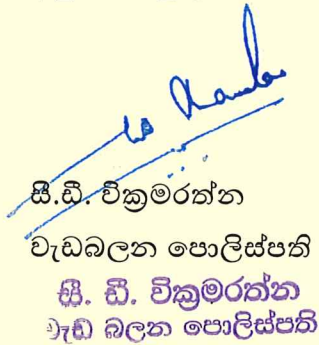 සී.ඩී. වික්‍රමරත්න
වැඩබලන පොලිස්පති
සී. ඩී. වික්‍රමරත්න
වැඩ බලන පොලිස්පති